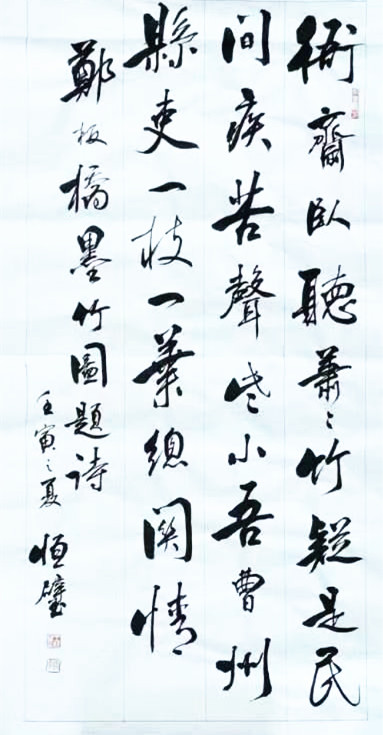 衙齋臥聽蕭〻竹疑是民
间疾苦聲些小吾曹州
縣吏一枝一葉總関情
鄭板橋墨竹圖題诗
壬寅之夏 恒璧